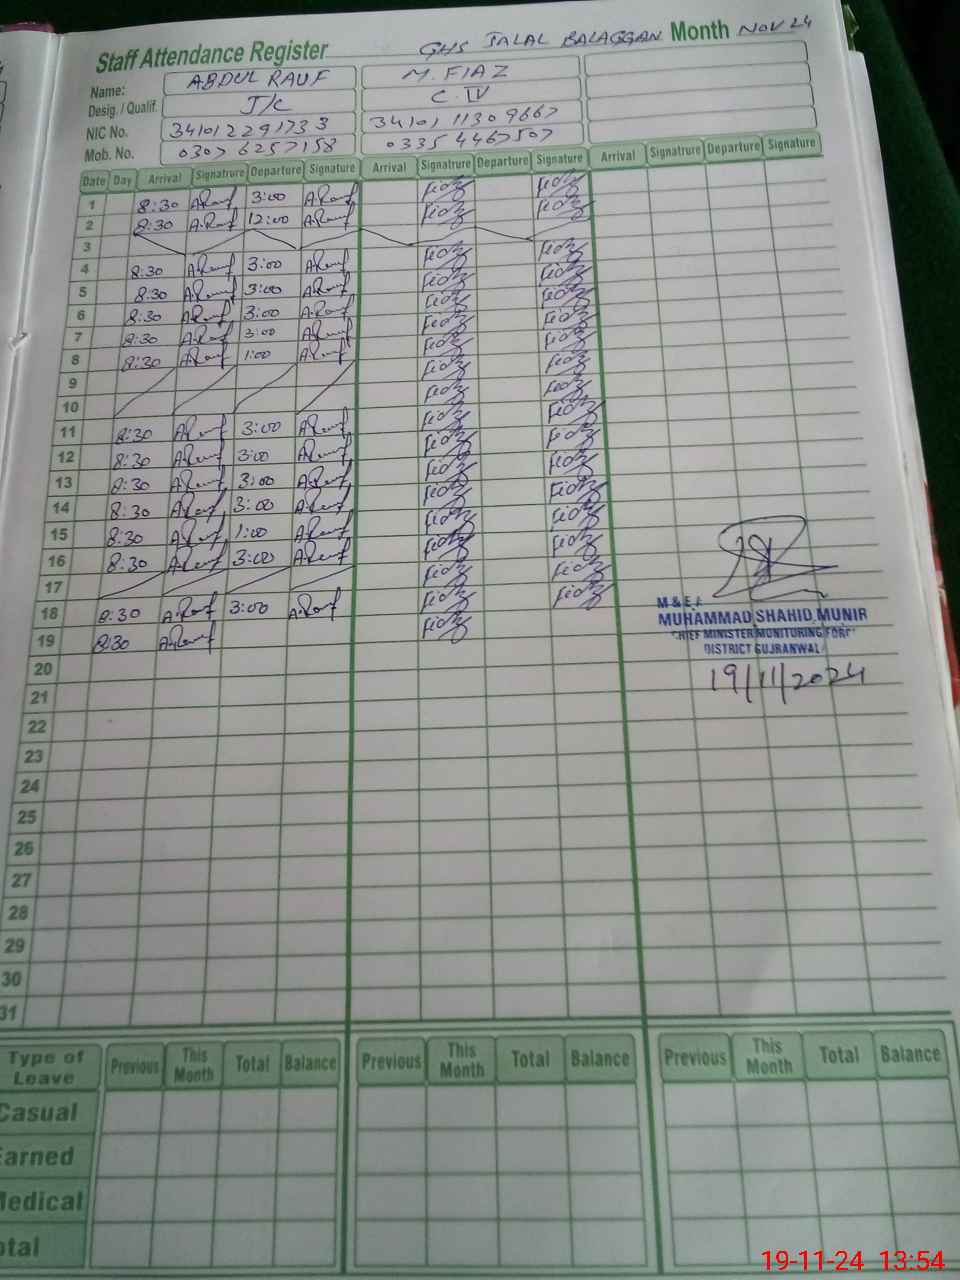 Staff Attendance Register GHS JALAL BALAGGAN Month NOV 24
Name: ABDUL RAUF M. FIAZ
Desig. / Qualif. J/C C.IV
NIC No. 34101 2291733 34101 1130 9667
Mob. No. 0307 6257158 0335 4467507
Date Day Arrival Signatrure Departure Signature Arrival Signatrure Departure Signature Arrival Signatrure Departure Signature
1 8:30 A.Rauf 3:00 A.Rauf Fiaz Fiaz
2 8:30 A.Rauf 12:00 A.Rauf Fiaz Fiaz
3
4 8:30 A.Rauf 3:00 A.Rauf Fiaz Fiaz
5 8:30 A.Rauf 3:00 A.Rauf Fiaz Fiaz
6 8:30 A.Rauf 3:00 A.Rauf Fiaz Fiaz
7 8:30 A.Rauf 3:00 A.Rauf Fiaz Fiaz
8 8:30 A.Rauf 1:00 A.Rauf Fiaz Fiaz
9 Fiaz Fiaz
10 Fiaz Fiaz
11 8:30 A.Rauf 3:00 A.Rauf Fiaz Fiaz
12 8:30 A.Rauf 3:00 A.Rauf Fiaz Fiaz
13 8:30 A.Rauf 3:00 A.Rauf Fiaz Fiaz
14 8:30 A.Rauf 3:00 A.Rauf Fiaz Fiaz
15 8:30 A.Rauf 1:00 A.Rauf Fiaz Fiaz
16 8:30 A.Rauf 3:00 A.Rauf Fiaz Fiaz
17 Fiaz Fiaz
18 8:30 A.Rauf 3:00 A.Rauf Fiaz Fiaz
19 8:30 A.Rauf Fiaz
M & E A
MUHAMMAD SHAHID MUNIR
CHIEF MINISTER MONITORING FORC
DISTRICT GUJRANWAL
19/11/2024
20
21
22
23
24
25
26
27
28
29
30
31
Type of Leave Previous This Month Total Balance Previous This Month Total Balance Previous This Month Total Balance
Casual
Earned
Medical
otal
19-11-24 13:54